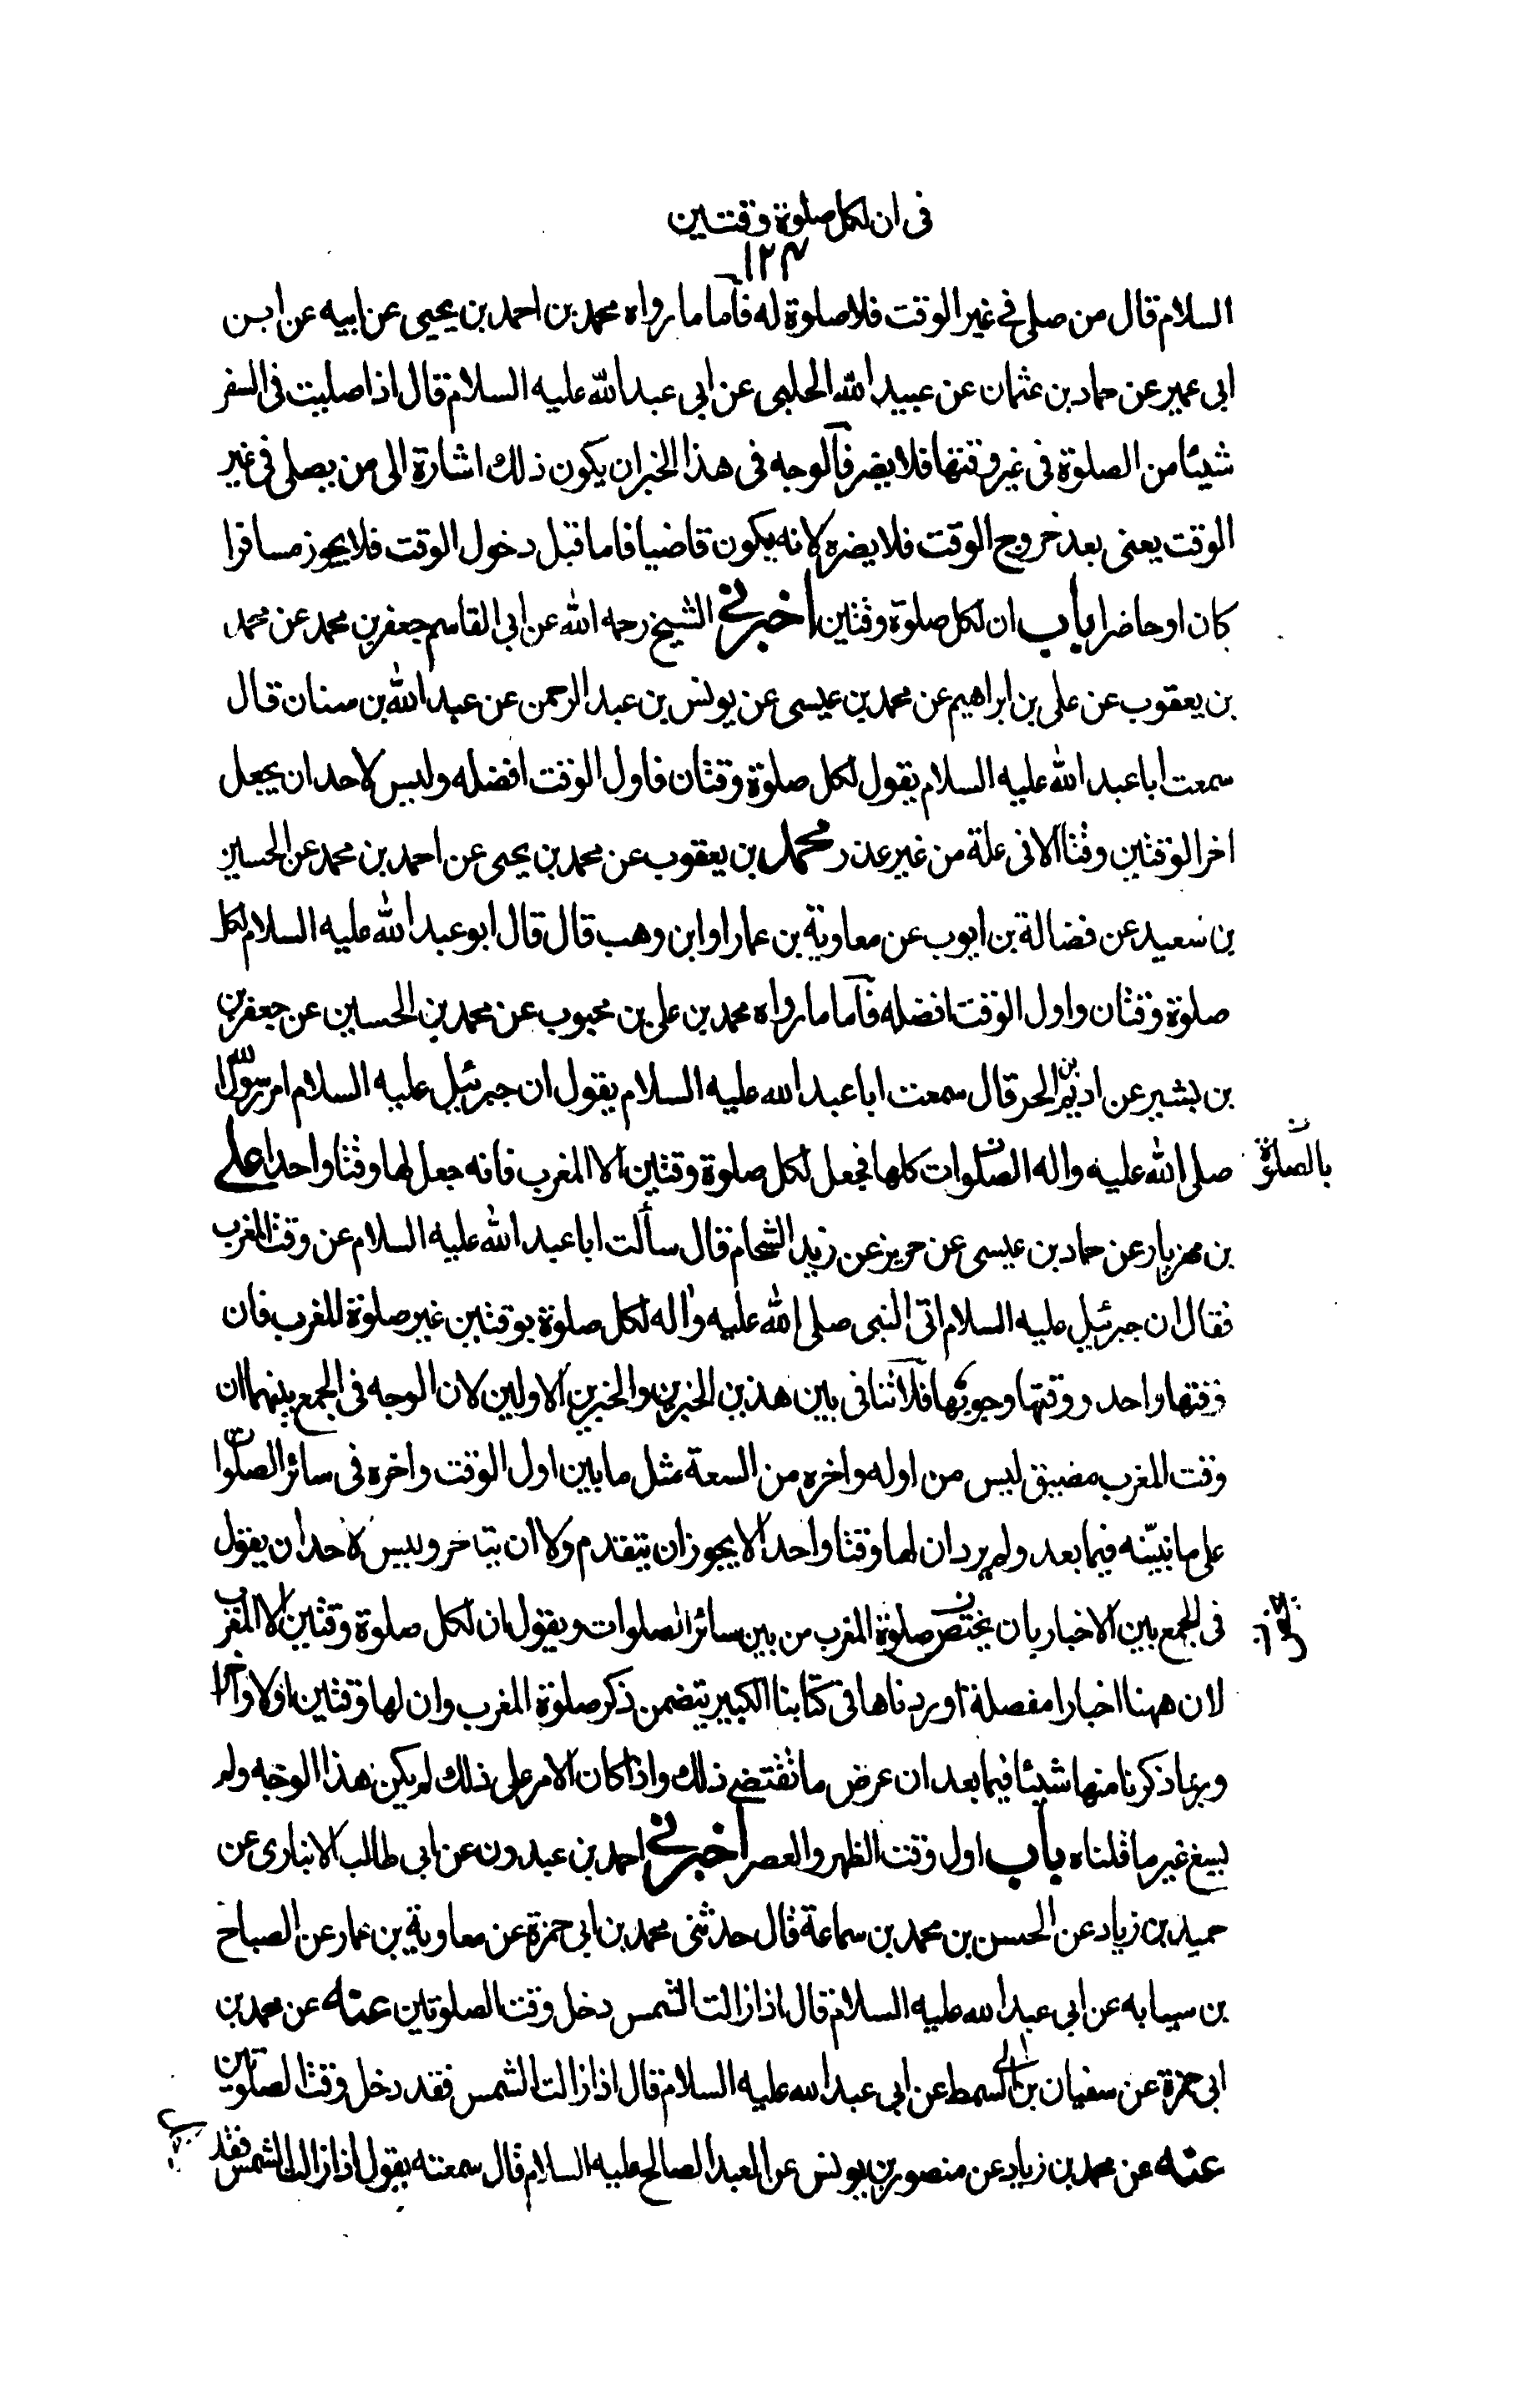 فى ان لكل صلوة وقتين
١٢٣
السلام قال من صلى فى غير الوقت فلا صلوة له فاما ما رواه محمد بن احمد بن يحيى عن ابيه عن ابن
ابى عمير عن حماد بن عثمان عن عبيد الله الحلبى عن ابى عبد الله عليه السلام قال اذا صليت فى السفر
شيئا من الصلوة فى غير وقتها فلا يضر فالوجه فى هذا الخبر ان يكون ذلك اشارة الى من يصلى فى غير
الوقت يعنى بعد خروج الوقت فلا يضره لانه يكون قاضيا فاما قبل دخول الوقت فلا يجوز مسافرا
كان او حاضرا باب ان لكل صلوة وقتين اخبرنى الشيخ رحمه الله عن ابى القاسم جعفر بن محمد عن محمد
بن يعقوب عن على بن ابراهيم عن محمد بن عيسى عن يونس بن عبد الرحمن عن عبد الله بن سنان قال
سمعت ابا عبد الله عليه السلام يقول لكل صلوة وقتان فاول الوقت افضله وليس لاحد ان يجعل
اخر الوقتين وقتا الا فى علة من غير عذر محمد بن يعقوب عن محمد بن يحيى عن احمد بن محمد عن الحسين
بن سعيد عن فضالة بن ايوب عن معاوية بن عمار او ابن وهب قال قال ابو عبد الله عليه السلام لكل
صلوة وقتان واول الوقت افضله فاما ما رواه محمد بن على بن محبوب عن محمد بن الحسين عن جعفر بن
بن بشير عن اديم بن الحر قال سمعت ابا عبد الله عليه السلام يقول ان جبرئيل عليه السلام امر رسول الله
صلى الله عليه واله الصلوات كلها فجعل لكل صلوة وقتين الا المغرب فانه جعل لها وقتا واحدا على
بالصلوة
بن مهزيار عن حماد بن عيسى عن حريز عن زيد الشحام قال سألت ابا عبد الله عليه السلام عن وقت المغرب
فقال ان جبرئيل عليه السلام اتى النبى صلى الله عليه واله لكل صلوة بوقتين غير صلوة المغرب فان
وقتها واحد ووقتها وجوبها فلا تنافى بين هذين الخبرين والخبرين الاولين لان الوجه فى الجمع بينهما ان
وقت المغرب مضيق ليس من اوله واخره من السعة مثل ما بين اول الوقت واخره فى سائر الصلوات
على ما نبينه فيما بعد ولم يرد ان لها وقتا واحدا لا يجوز ان يتقدم ولا ان يتاخر وليس لاحد ان يقول
فى الجمع بين الاخبار بان يختص صلوة المغرب من بين سائر الصلوات ويقول ان لكل صلوة وقتين الا المغرب
لان ههنا اخبارا مفصلة اوردناها فى كتابنا الكبير يتضمن ذكر صلوة المغرب وان لها وقتين اولا واخرا
وربما ذكرنا منها شيئا فيما بعد ان عرض ما تقتضى ذلك واذا كان الامر على ذلك لم يكن هذا الوجه ولم
يبغ غير ما قلناه باب اول وقت الظهر والعصر اخبرنى احمد بن عبدون عن ابى طالب الانبارى عن
حميد بن زياد عن الحسن بن محمد بن سماعة قال حدثنى محمد بن ابى حمزة عن معاوية بن عمار عن الصباح
بن سيابه عن ابى عبد الله عليه السلام قال اذا زالت الشمس دخل وقت الصلوتين عنه عن محمد بن
ابى حمزة عن سفيان بن السمط عن ابى عبد الله عليه السلام قال اذا زالت الشمس فقد دخل وقت الصلوتين
عنه عن محمد بن زياد عن منصور بن يونس عن العبد الصالح عليه السلام قال سمعته يقول اذا زالت الشمس فقد